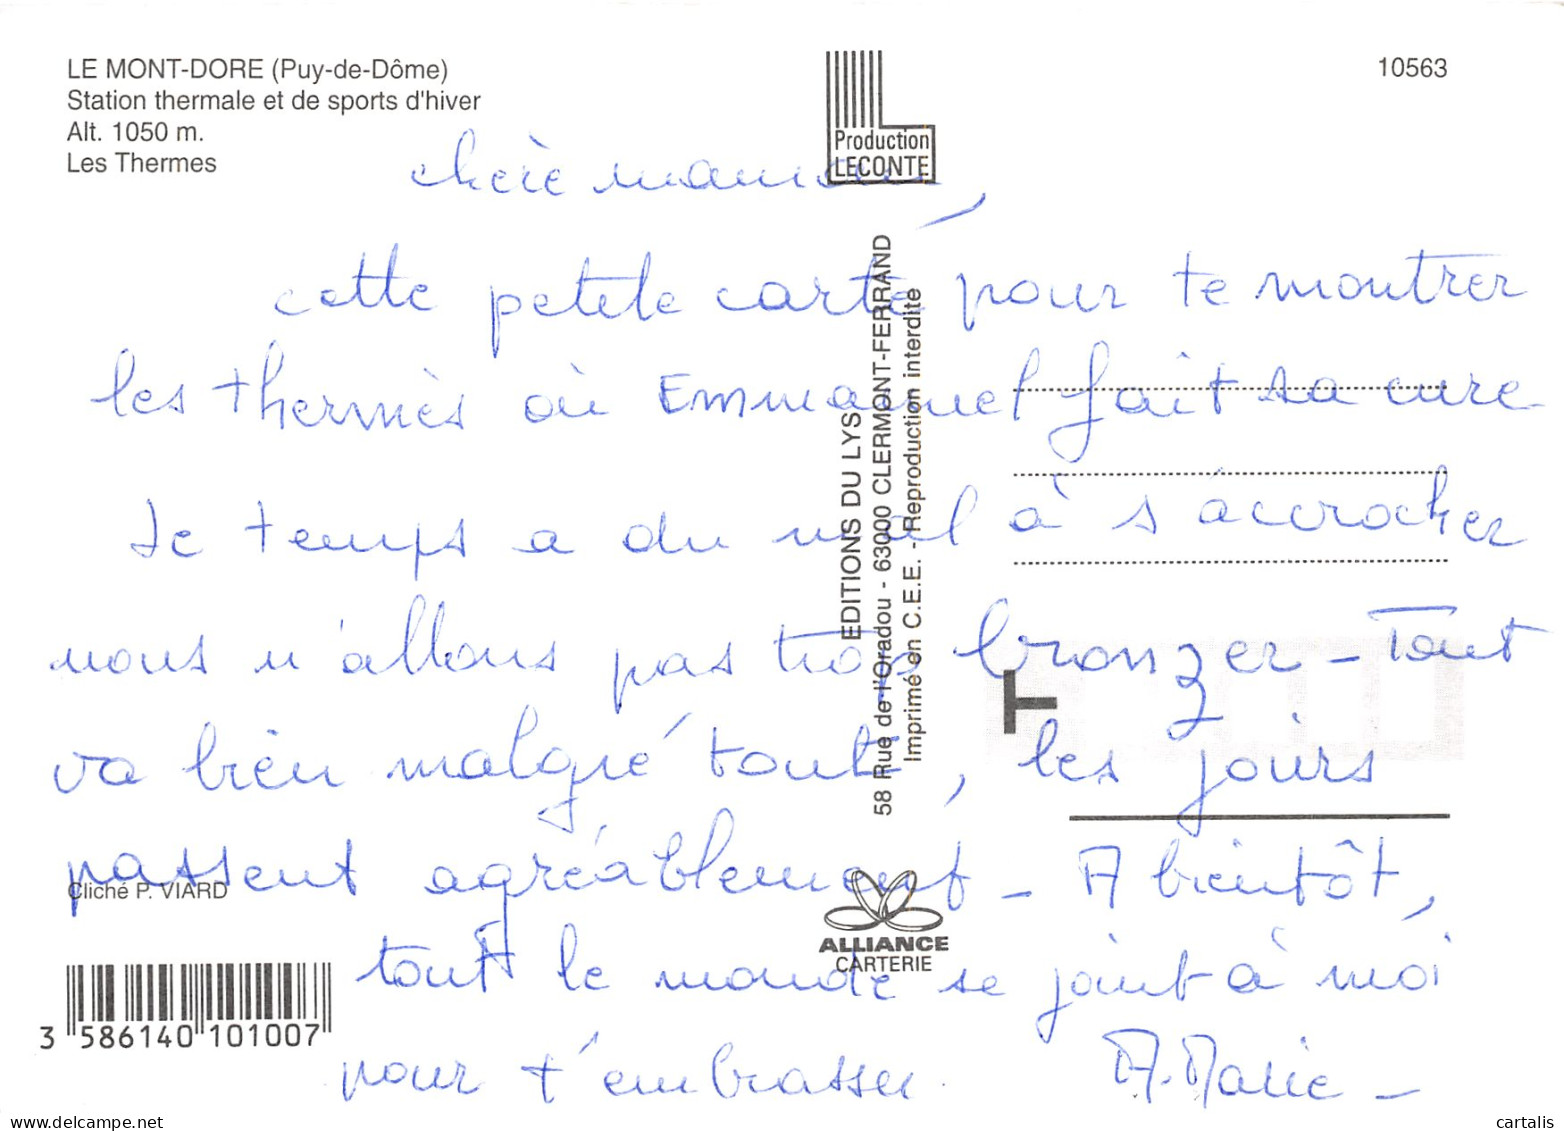 LE MONT-DORE (Puy-de-Dôme)
Station thermale et de sports d'hiver
Alt. 1050 m.
Les Thermes
10563
Production
LECONTE
chère maman,
cette petite carte pour te montrer
les thermes où Emmanuel fait sa cure
Le temps a du mal à s'accrocher
nous n'allons pas trop bronzer - Tout
va bien malgré tout, les jours
passent agréablement - A bientôt,
tout le monde se joint à moi
pour t'embrasser. A. Marie -
EDITIONS DU LYS
58 Rue de l'Oradou - 63000 CLERMONT-FERRAND
Imprimé en C.E.E. - Reproduction interdite
T
Cliché P. VIARD
ALLIANCE
CARTERIE
3 586140 101007
www.delcampe.net
cartalis